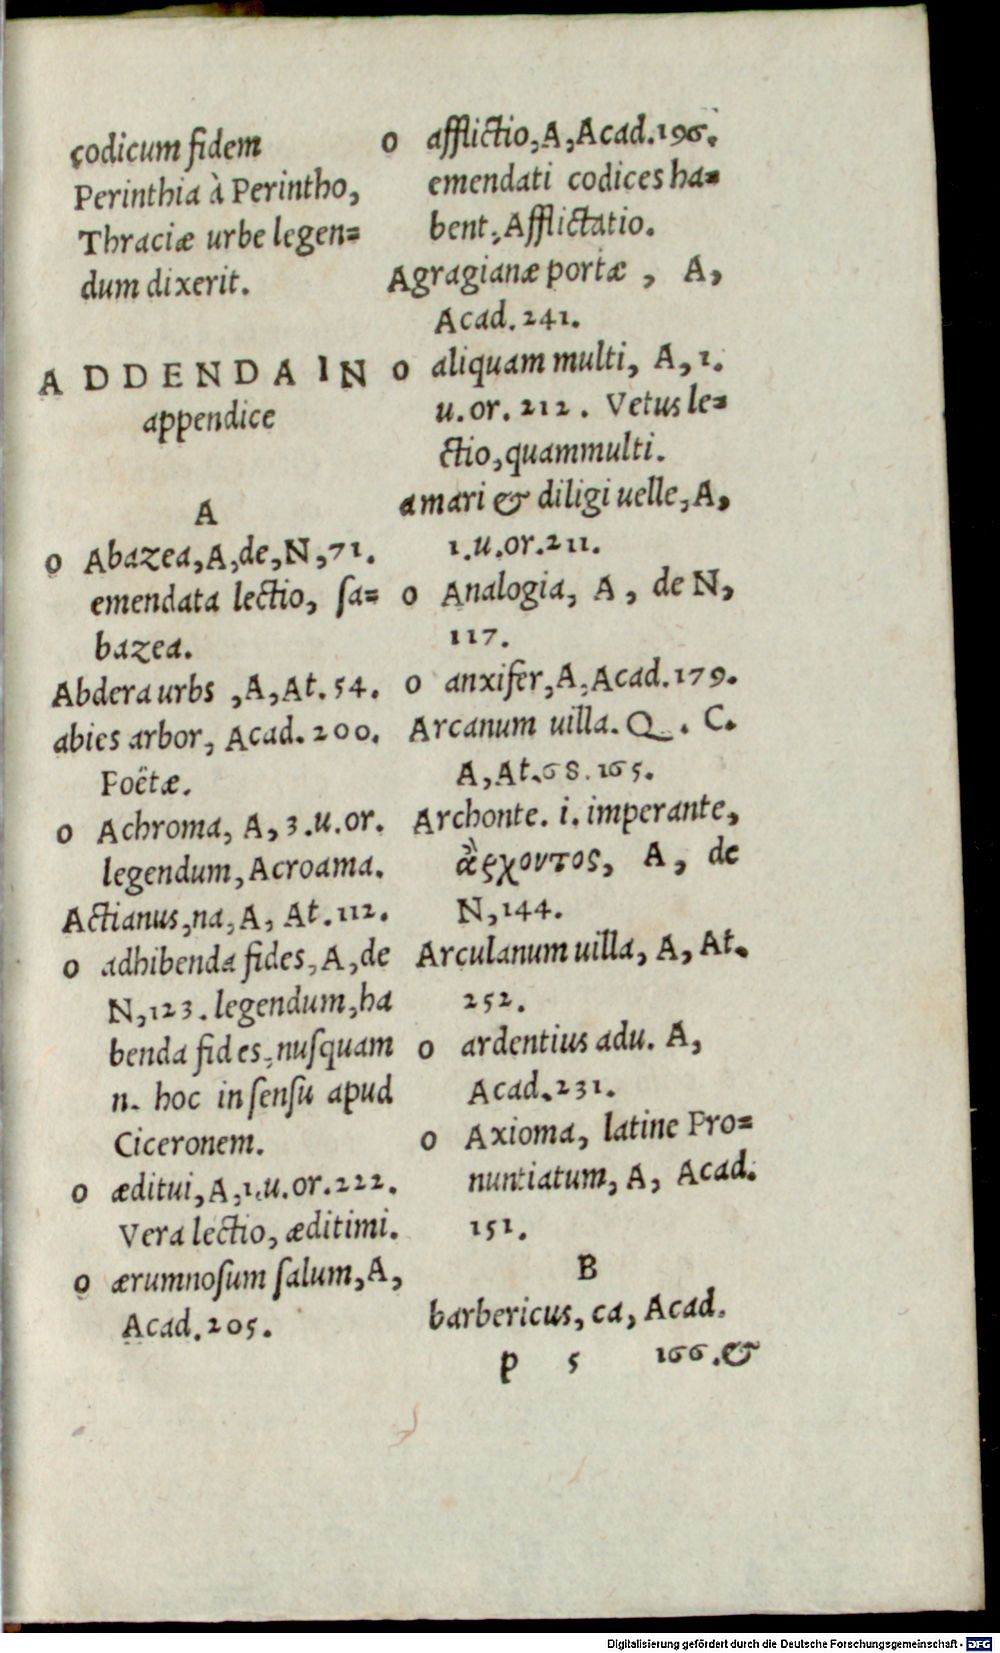 codicum fidem
Perinthia à Perintho,
Thraciæ urbe legen=
dum dixerit.
ADDENDA IN
appendice
A
o Abazea, A, de, N, 71.
emendata lectio, ſa=
bazea.
Abdera urbs , A, At. 54.
abies arbor, Acad. 200.
Poëtæ.
o Achroma, A, 3. u. or.
legendum, Acroama.
Actianus, na, A, At. 112.
o adhibenda fides, A, de
N, 123. legendum, ha
benda fides, nuſquam
n. hoc in ſenſu apud
Ciceronem.
o æditui, A, 1. u. or. 222.
Vera lectio, æditimi.
o ærumnoſum ſalum, A,
Acad. 205.
o afflictio, A, Acad. 196.
emendati codices ha=
bent, Afflictatio.
Agragianæ portæ , A,
Acad. 241.
o aliquam multi, A, 1.
u. or. 212. Vetus le=
ctio, quammulti.
amari & diligi uelle, A,
1. u. or. 211.
o Analogia, A, de N,
117.
o anxifer, A, Acad. 179.
Arcanum uilla. Q. C.
A, At. 68. 165.
Archonte. i. imperante,
ἄρχοντος, A, de
N, 144.
Arculanum uilla, A, At.
252.
o ardentius adu. A,
Acad. 231.
o Axioma, latine Pro=
nuntiatum, A, Acad.
151.
B
barbericus, ca, Acad.
p 5 166. &
Digitalisierung gefördert durch die Deutsche Forschungsgemeinschaft - DFG